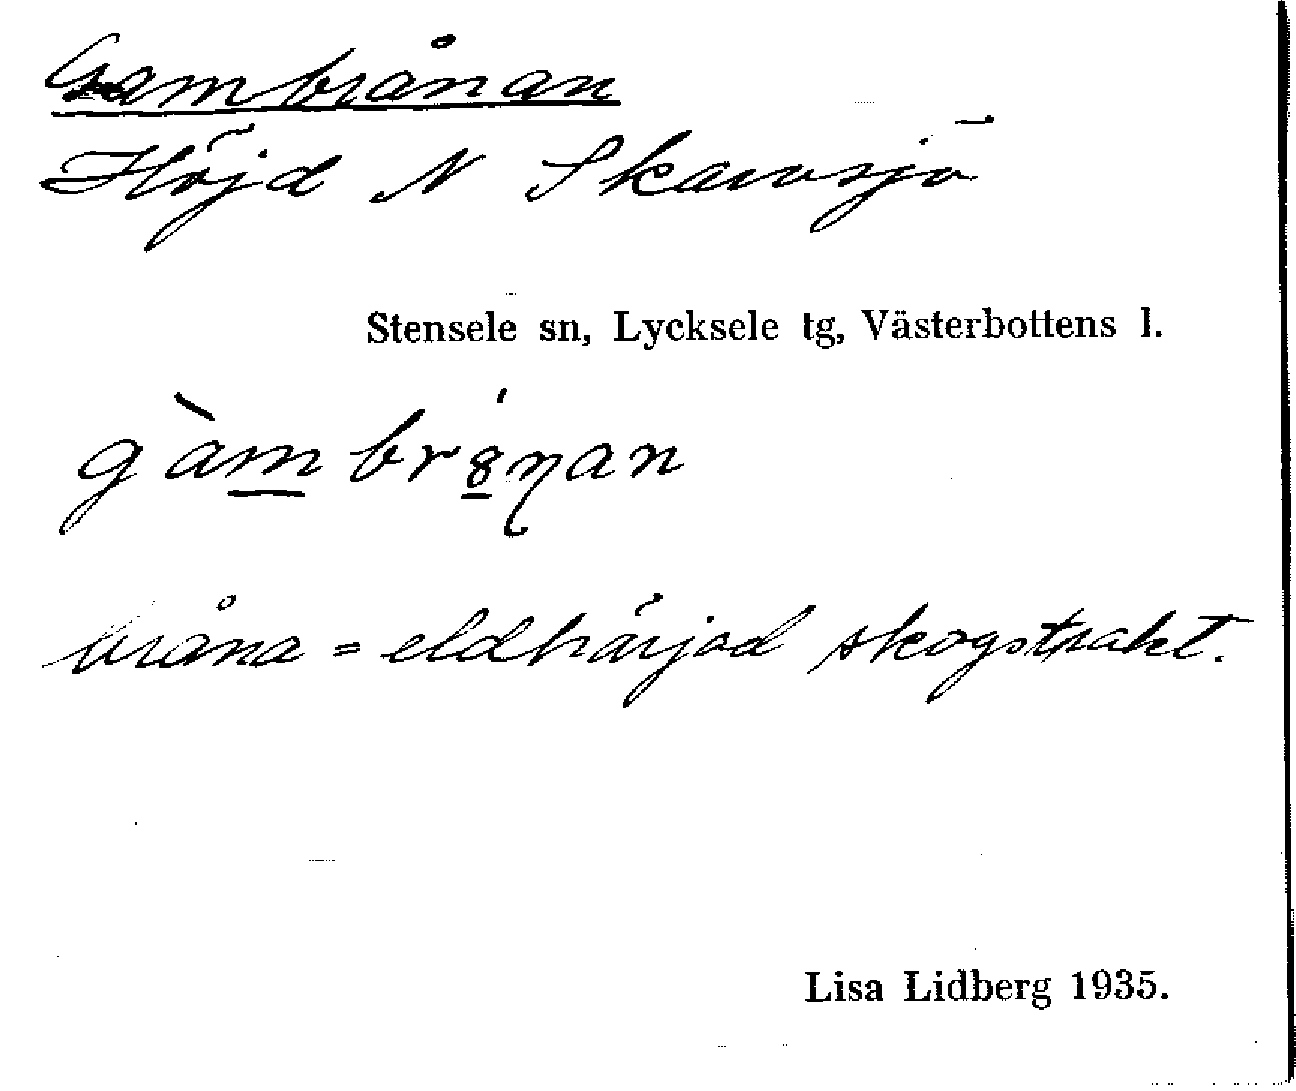 Gambrånan
Höjd N Skarvsjö
Stensele sn, Lycksele tg, Västerbottens l.
gàm̲br8̲́ŋan
bråna = eldhärjad skogstrakt.
Lisa Lidberg 1935.